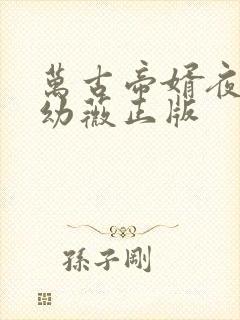 萬古帝婿夜
幼薇正版
孫子剛